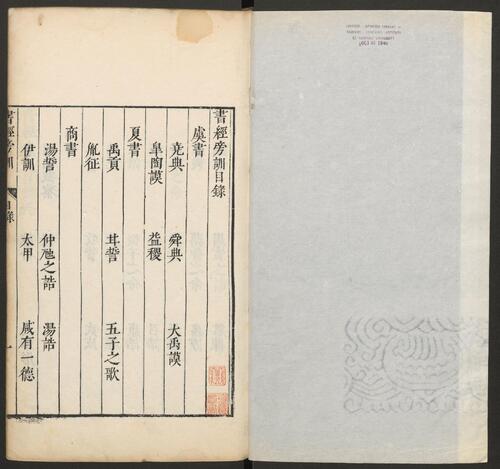 書經旁訓目錄
虞書
堯典 舜典 大禹謨
臯陶謨 益稷
夏書
禹貢 甘誓 五子之歌
胤征
商書
湯誓 仲虺之誥 湯誥
伊訓 太甲 咸有一德
書經旁訓 目錄 一